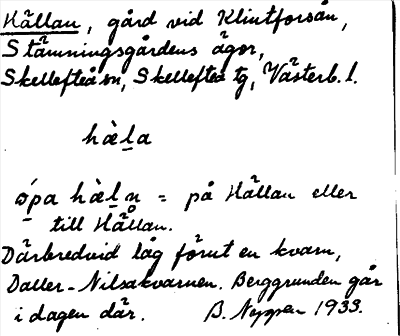 Hällan, gård vid Klintforsån,
Stämningsgårdens ägor,
Skellefteå sn, Skellefteå tg, Västerb. l.
hàḻa
ǿpa hàḻn = på Hällan eller
till Hällan.
Därbredvid låg förut en kvarn,
Daller-Nilsakvarnen. Berggrunden går
i dagen där. B. 1933.